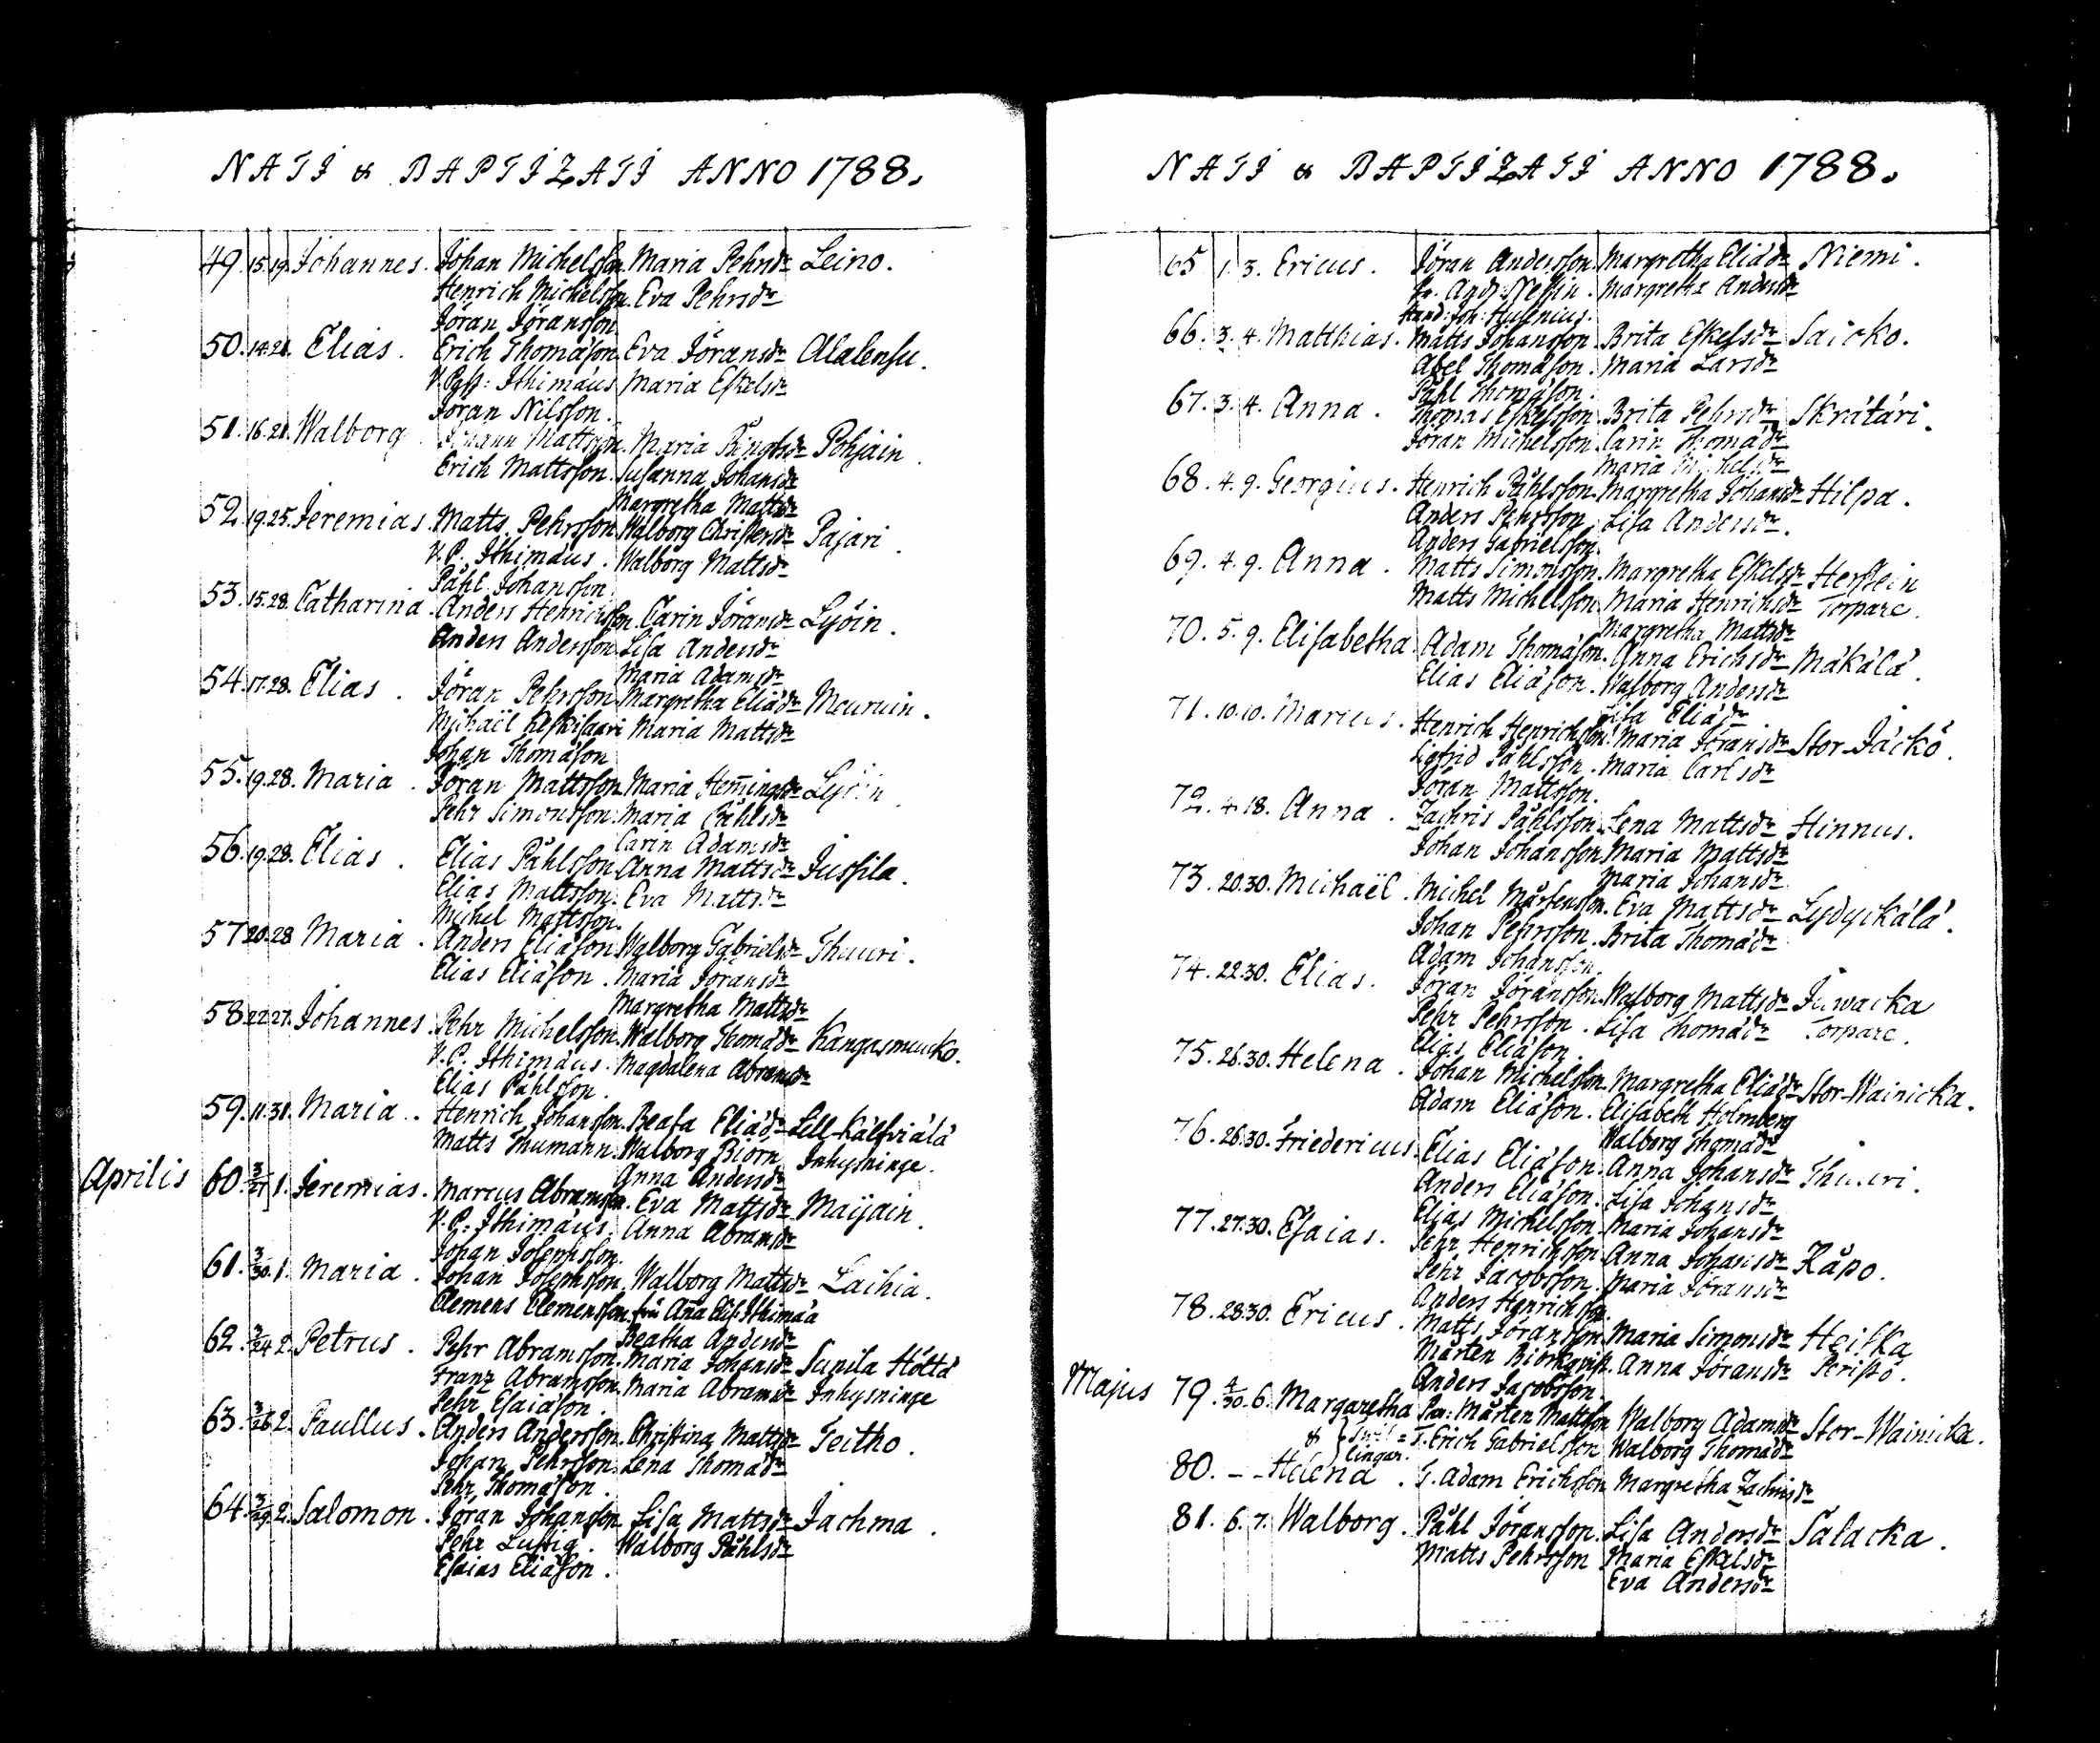 NATI & BAPTIZATI ANNO 1788.
49. 15. 19. Johannes. Johan Michelsson. Maria Pehrsdr Leino.
Henrich Michelsson. Eva Pehrsdr
Jöran Jöransson
50. 14. 21. Elias. Erich Thomäson. Eva Jöransdr Alalensu.
V. Past: Ithimäus Maria Eskelsdr
Jöran Nilsson.
51. 16. 21. Walborg Mattsson. Maria Bengtsdr Pohjain.
Erich Mattsson. Susanna Johansdr
Margretha Mattsdr
52. 19. 25. Jeremias. Matts Pehrsson Walborg Christersdr Pajari.
V. P. Ithimäus. Walborg Mattsdr
Påhl Johansson
53. 15. 28. Catharina. Anders Henrichsson. Carin Jöransdr Lyöin.
Anders Andersson. Lisa Andersdr
Maria Adamsdr
54. 17. 28. Elias. Jöran Pehrsson. Margretha Eliädr Meuruin.
Michaël Keskisaari Maria Mattsdr
Johan Thomäson
55. 19. 28. Maria. Jöran Mattsson. Maria Hem̅ingsdr Lyöin
Pehr Simonsson. Maria Påhlsdr
Carin Adamsdr
56. 19. 28. Elias. Elias Påhlsson Anna Mattsdr Jussila.
Elias Mattsson. Eva Mattsdr
Michel Mattsson.
57. 20. 28. Maria. Anders Eliäson. Walborg Gabrielsdr Thuuri.
Elias Eliäson. Maria Jöransdr
Margretha Mattsdr
58. 22. 27. Johannes. Pehr Michelsson. Walborg Thomädr Kangasmucko.
V. P. Ithimäus. Magdalena Abramsdr
Elias Påhlsson.
59. 11. 31. Maria. Henrich Johansson. Beata Eliädr Lill-Kälfviälä
Matts Thumann. Walborg Biörn Inhysninge.
Anna Andersdr
Aprilis 60. 3/27 1. Jeremias. Marcus Abramsson. Eva Mattsdr Maijain.
V. P. Ithimäus. Anna Abramsdr
Johan Josephsson.
61. 3/30. 1. Maria. Johan Josephsson. Walborg Mattsdr Laihia.
Clemens Clemensson. fru An̅a Elis. Ithimäa
Beatha Andersdr
62. 3/24 2. Petrus. Pehr Abramsson. Maria Johansdr Sunila Höttä
Franz Abramsson. Maria Abramsdr Inhysninge
Pehr Esaiäson.
63. 3/26 2. Paullus. Anders Andersson. Christina Mattsdr Teitho.
Johan Pehrsson. Lena Thomädr
Pehr Thomäson.
64. 3/29. 2. Salomon. Jöran Johansson. Lisa Mattsdr Jachma.
Pehr Lustig. Walborg Påhlsdr
Esaias Eliäson.
NATI & BAPTIZATI ANNO 1788.
65 1. 3. Ericus. Jöran Andersson. Margretha Eliädr Niemi.
Andr: Margretha Andersdr
Hand: Joh:
66. 3. 4. Matthias. Matts Johansson. Brita Eskelsdr Saicko.
Abel Thomäson. Maria Larsdr
Påhl Thomäson.
67. 3. 4. Anna. Thomas Eskelsson Brita Pehrsdr Skrätäri.
Jöran Michelsson. Carin Thomädr
Maria Michelsdr
68. 4. 9. Georgius. Henrich Påhlsson. Margretha Johansdr Hilpa.
Anders Pehrsson. Lisa Andersdr.
Anders Gabrielsson.
69. 4. 9. Anna. Matts Simonsson. Margretha Eskelsdr Herstein
Matts Michelsson Maria Henrichsdr Torpare.
Margretha Mattsdr
70. 5. 9. Elisabetha Adam Thomäson. Anna Erichsdr Mäkälä.
Elias Eliäson. Walborg Andersdr
Lisa Eliädr.
71. 10. 10. Marcus. Henrich Henrichsson. Maria Jöransdr Stor-Jäckö.
Sigfrid Påhlsson. Maria Carlsdr
Jöran Mattsson.
72. 4. 18. Anna. Zachris Påhlsson. Lena Mattsdr Hinnus.
Johan Johansson Maria Mattsdr
Maria Johansdr
73. 20. 30. Michaël. Michel Mårtensson. Eva Mattsdr Lydyckälä.
Johan Pehrsson. Brita Thomädr
Adam Johansson.
74. 22. 30. Elias. Jöran Jöransson. Walborg Mattsdr Juwacka
Pehr Pehrsson. Lisa Thomädr Torpare.
Elias Eliäson.
75. 26. 30. Helena. Johan Michelsson. Margretha Eliädr Stor-Wainicka.
Adam Eliäson. Elisabeth Holmberg
Walborg Thomädr
76. 26. 30. Friedericus. Elias Eliäson. Anna Johansdr Thuuri.
Anders Eliäson. Lisa Johansdr
Elias Michelsson. Maria Johansdr
77. 27. 30. Esaias. Pehr Henrichsson Anna Johansdr Råpo.
Pehr Jacobsson. Maria Jöransdr
Anders Henrichsson.
78. 28. 30. Ericus. Matts Jöransson. Maria Simonsdr Heicka
Mårten Biörkqvist. Anna Jöransdr
Anders Jacobsson.
Majus 79. 4/30. 6. Margaretha Mårten Mattsson Walborg Adamsdr Stor-Wainicka.
& Twil= T. Erich Gabrielsson Walborg Thomädr
lingar.
80. – – Helena. T. Adam Erichsson Margretha Zachrisdr
81. 6. 7. Walborg. Påhl Jöransson. Lisa Andersdr Salacka.
Matts Pehrsson Maria Eskelsdr
Eva Andersdr